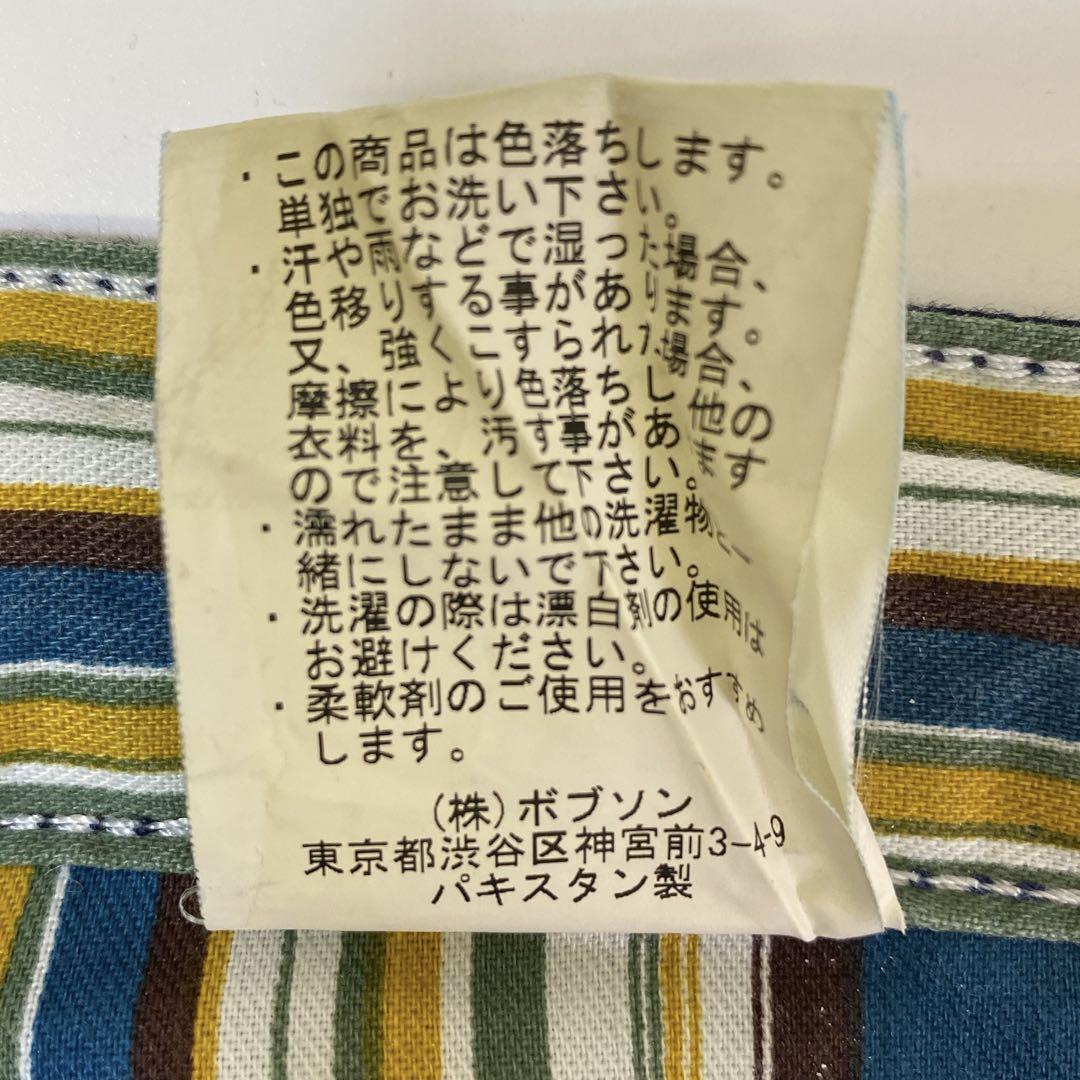 ・この商品は色落ちします。
単独でお洗い下さい。
・汗や雨などで湿った場合、
色移りする事があります。
又、強くこすられた場合、
摩擦により色落ちし他の
衣料を汚す事があります
ので注意して下さい。
・濡れたままで他の洗濯物と一
緒にしないで下さい。
・洗濯の際は漂白剤の使用は
お避けください。
・柔軟剤のご使用をおすすめ
します。
(株)ボブソン
東京都渋谷区神宮前3-4-9
パキスタン製